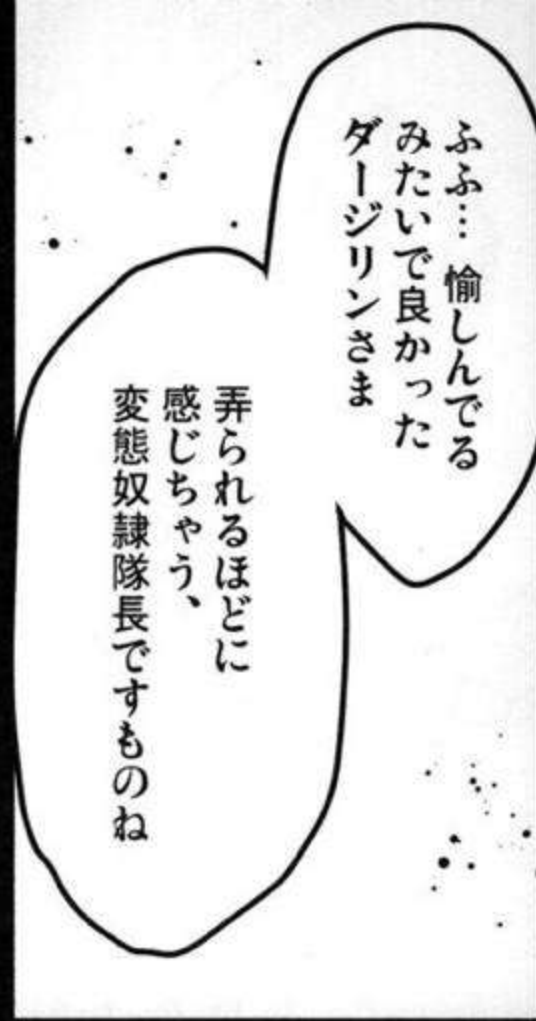 ふふ… 愉しんでる
みたいで良かった
ダージリンさま
弄られるほどに
感じちゃう、
変態奴隷隊長ですものね